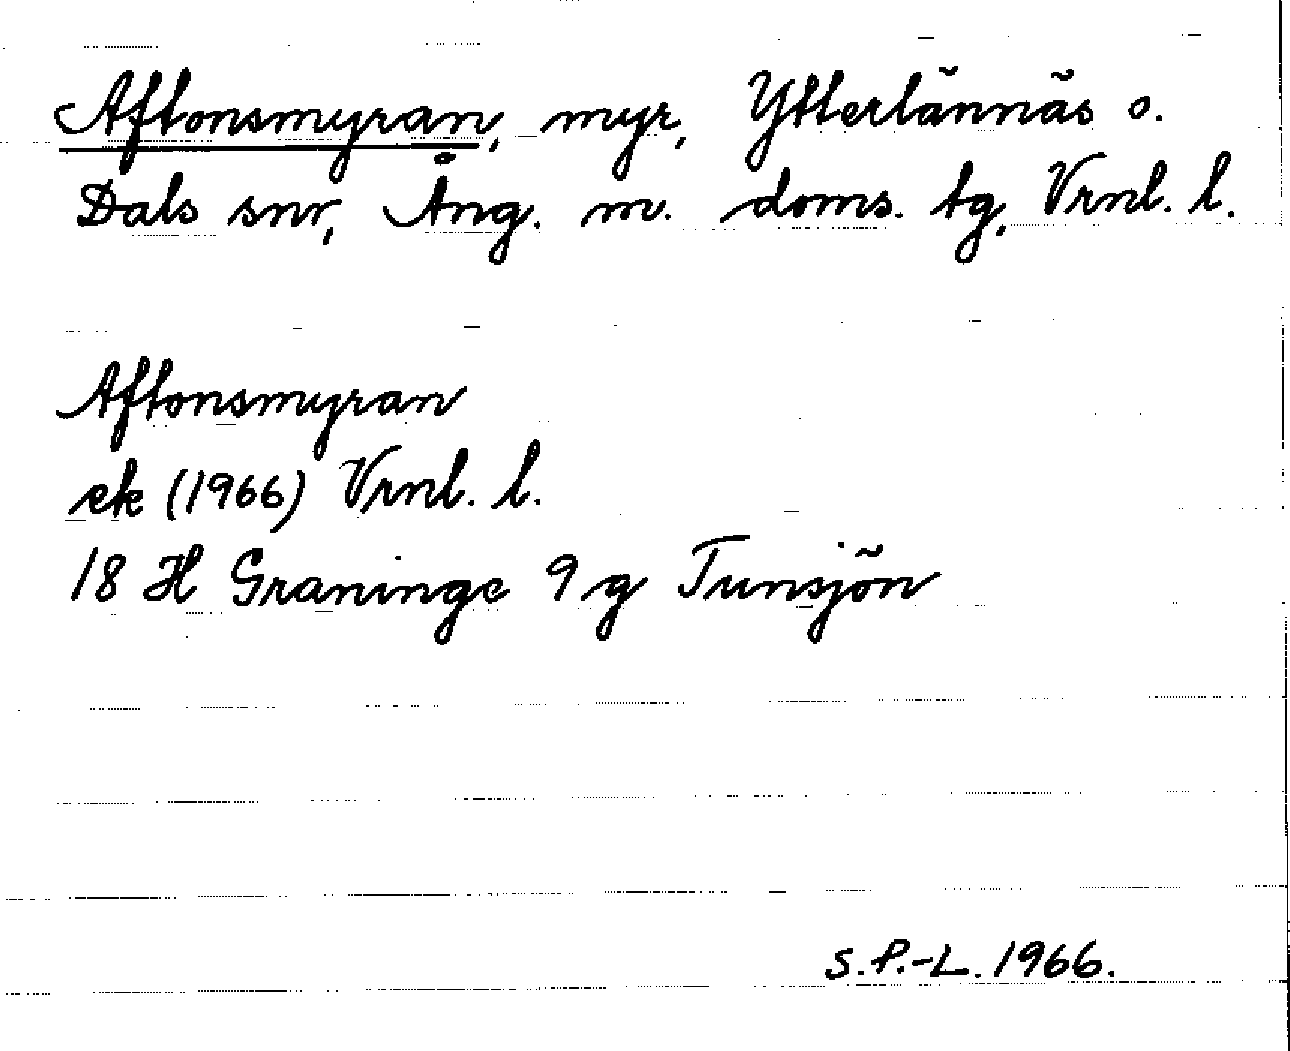 Aftonsmyran, myr, Ytterlännäs o.
Dals snr, Ång. m. doms. tg, Vrnl. l.
Aftonsmyran
ek (1966) Vrnl. l.
18 H Graninge 9 g Tunsjön
S.P.-L. 1966.